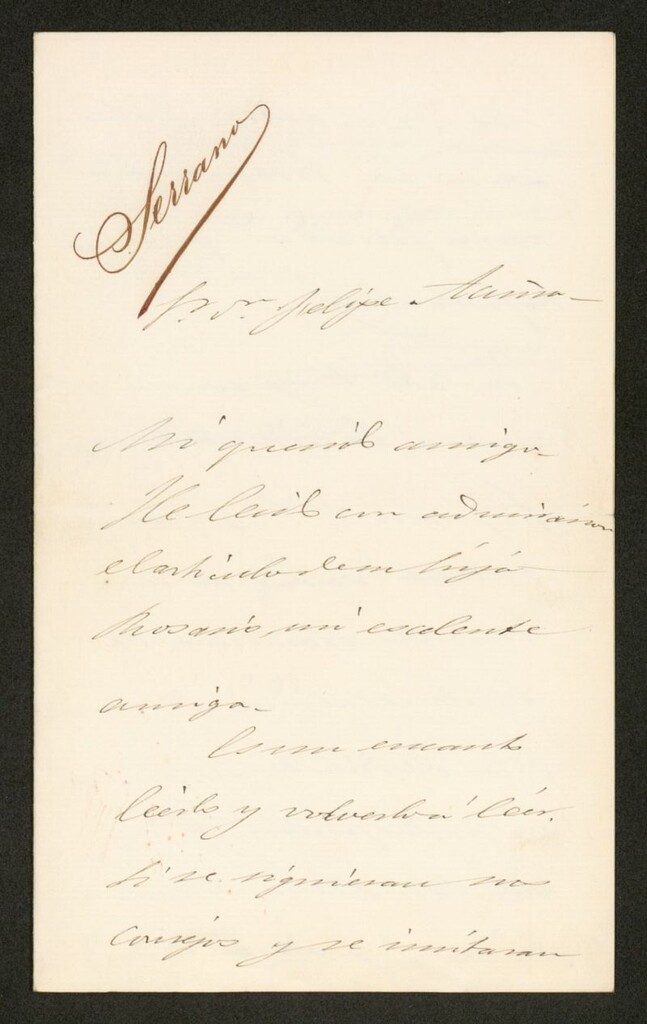 Serrano
Sr. Dn. Felipe Acuña
Mi querido amigo
He leido con admiracion
el articulo de su hija
Rosario, mi escelente
amiga.
Es un encanto
leerlo y volverlo á leer.
Si se siguieran sus
consejos y se imitaran